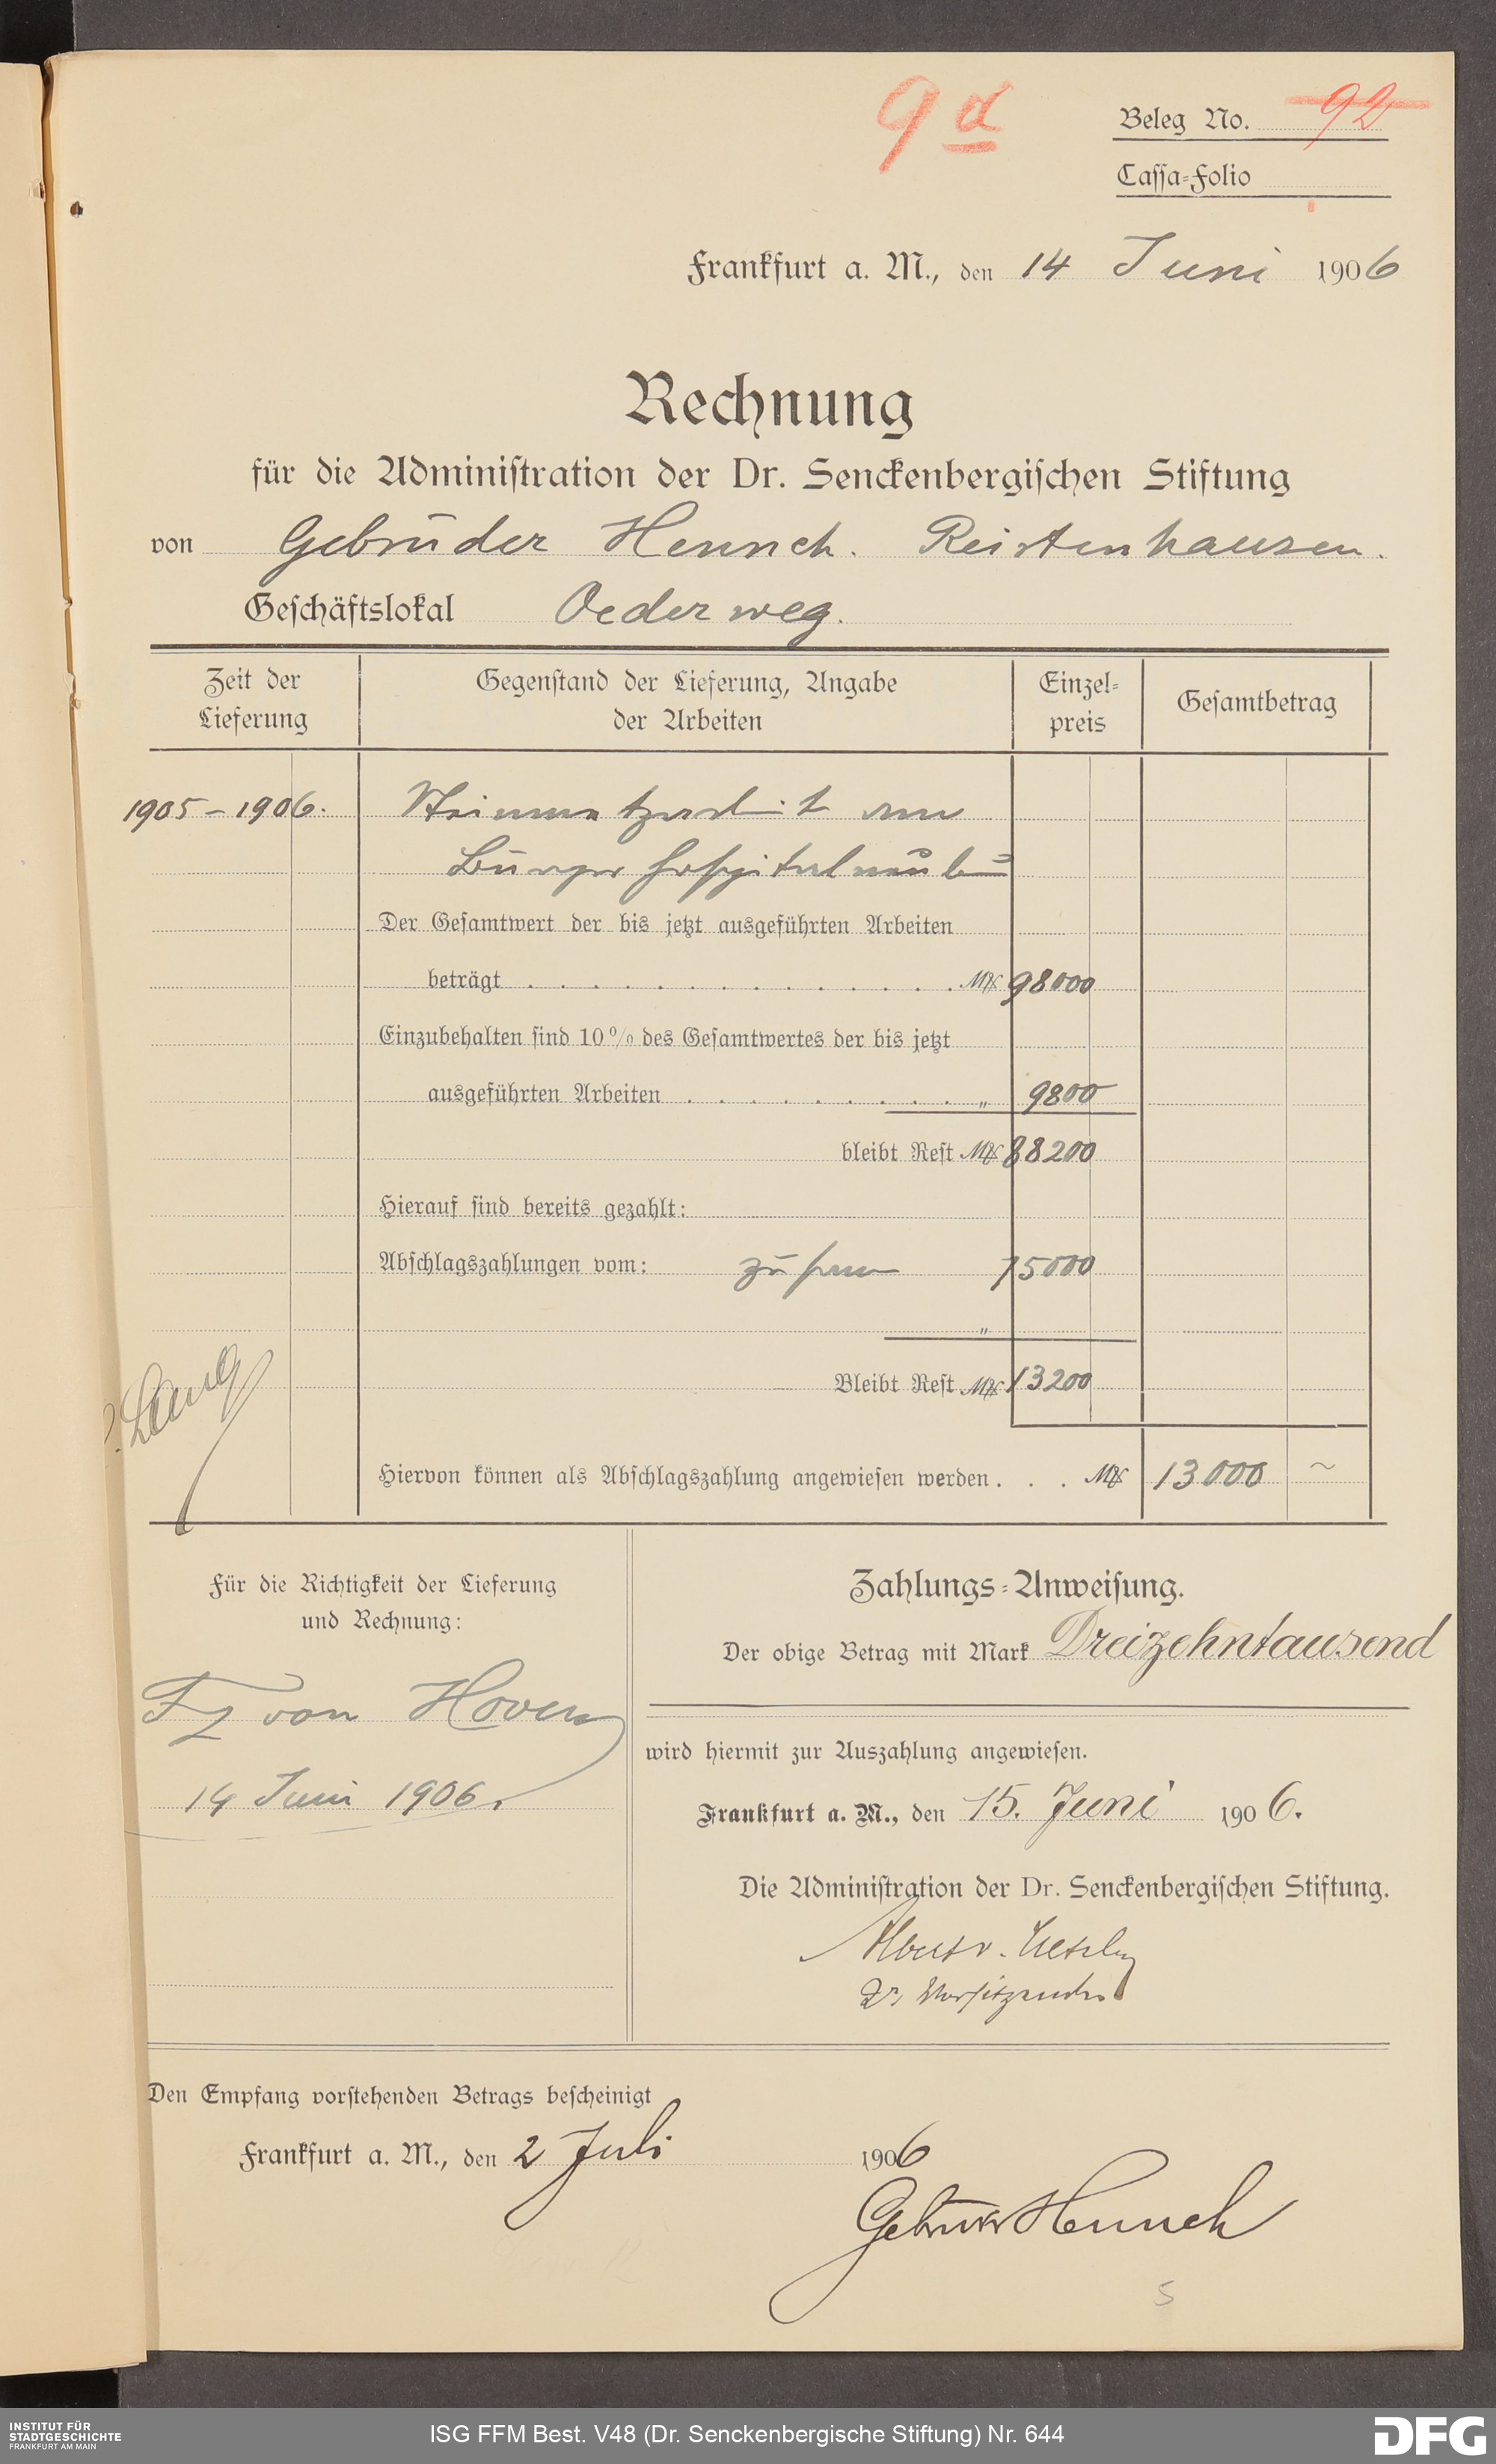 9 d
Beleg No. 92
Caſſa-Folio
Frankfurt a. M., den 14 Juni 1906
Rechnung
für die Adminiſtration der Dr. Senckenbergiſchen Stiftung
von Gebrüder Hennch. Reistenhausen.
Geſchäftslokal Oederweg.
Zeit der Lieferung
Gegenſtand der Lieferung, Angabe der Arbeiten
Einzelpreis
Geſamtbetrag
1905-1906. Steinmetzarbeit am
Bürgerhospitalneubau
Der Geſamtwert der bis jetzt ausgeführten Arbeiten
beträgt . . . . . . . . . . . . . . Mk 98000
Einzubehalten ſind 10% des Geſamtwertes der bis jetzt
ausgeführten Arbeiten . . . . . . . . . „ 9800
bleibt Reſt Mk 88200
Hierauf ſind bereits gezahlt:
Abſchlagszahlungen vom: zusam 75000
„
P. Lang
Bleibt Reſt Mk 13200
Hiervon können als Abſchlagszahlung angewieſen werden . . . Mk 13000 ~
Für die Richtigkeit der Lieferung
und Rechnung:
Fz von Hoven
14 Juni 1906.
Zahlungs-Anweiſung.
Der obige Betrag mit Mark Dreizehntausend
wird hiermit zur Auszahlung angewieſen.
Frankfurt a. M., den 15. Juni 1906.
Die Adminiſtration der Dr. Senckenbergiſchen Stiftung.
Vorsitzender
Den Empfang vorſtehenden Betrags beſcheinigt
Frankfurt a. M., den 2 Juli 1906
Gebrüder Hennch
5
INSTITUT FÜR
STADTGESCHICHTE
FRANKFURT AM MAIN
ISG FFM Best. V48 (Dr. Senckenbergische Stiftung) Nr. 644
DFG